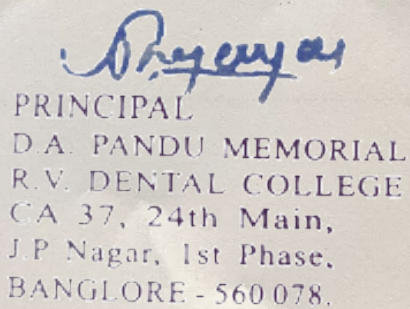 PRINCIPAL
D.A. PANDU MEMORIAL
R.V. DENTAL COLLEGE
CA 37, 24th Main,
J.P Nagar, 1st Phase,
BANGLORE - 560 078.